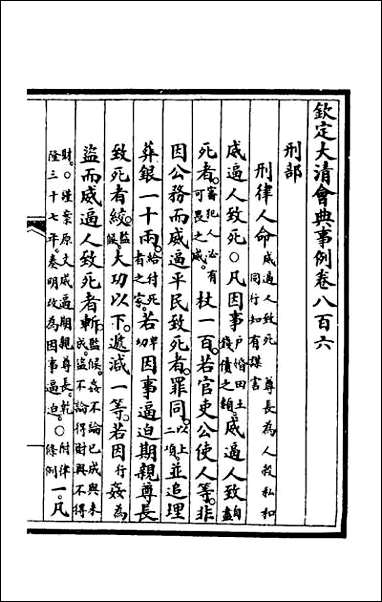 欽定大清會典事例卷八百六
刑部
刑律人命威逼人致死 尊長為人殺私和同行知有謀害
威逼人致死○凡因事戶婚田土錢債之類。威逼人致自盡
死者。審犯人必有可畏之威。杖一百。若官吏公使人等。非
因公務而威逼平民致死者。罪同。以上二項。並追埋
葬銀一十兩。給付死者之家。若卑幼因事逼迫期親尊長
致死者。絞。監候。大功以下。遞減一等。若因行姦為
盜而威逼人致死者。斬。監候。姦不論已成與未成。盜不論得財與不得
財。○謹案原文威逼期親尊長。乾隆三十七年。奏明改為因事逼迫。○附律條例一。凡